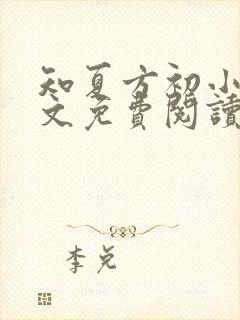 知夏方初小
文免費閱讀
李兌